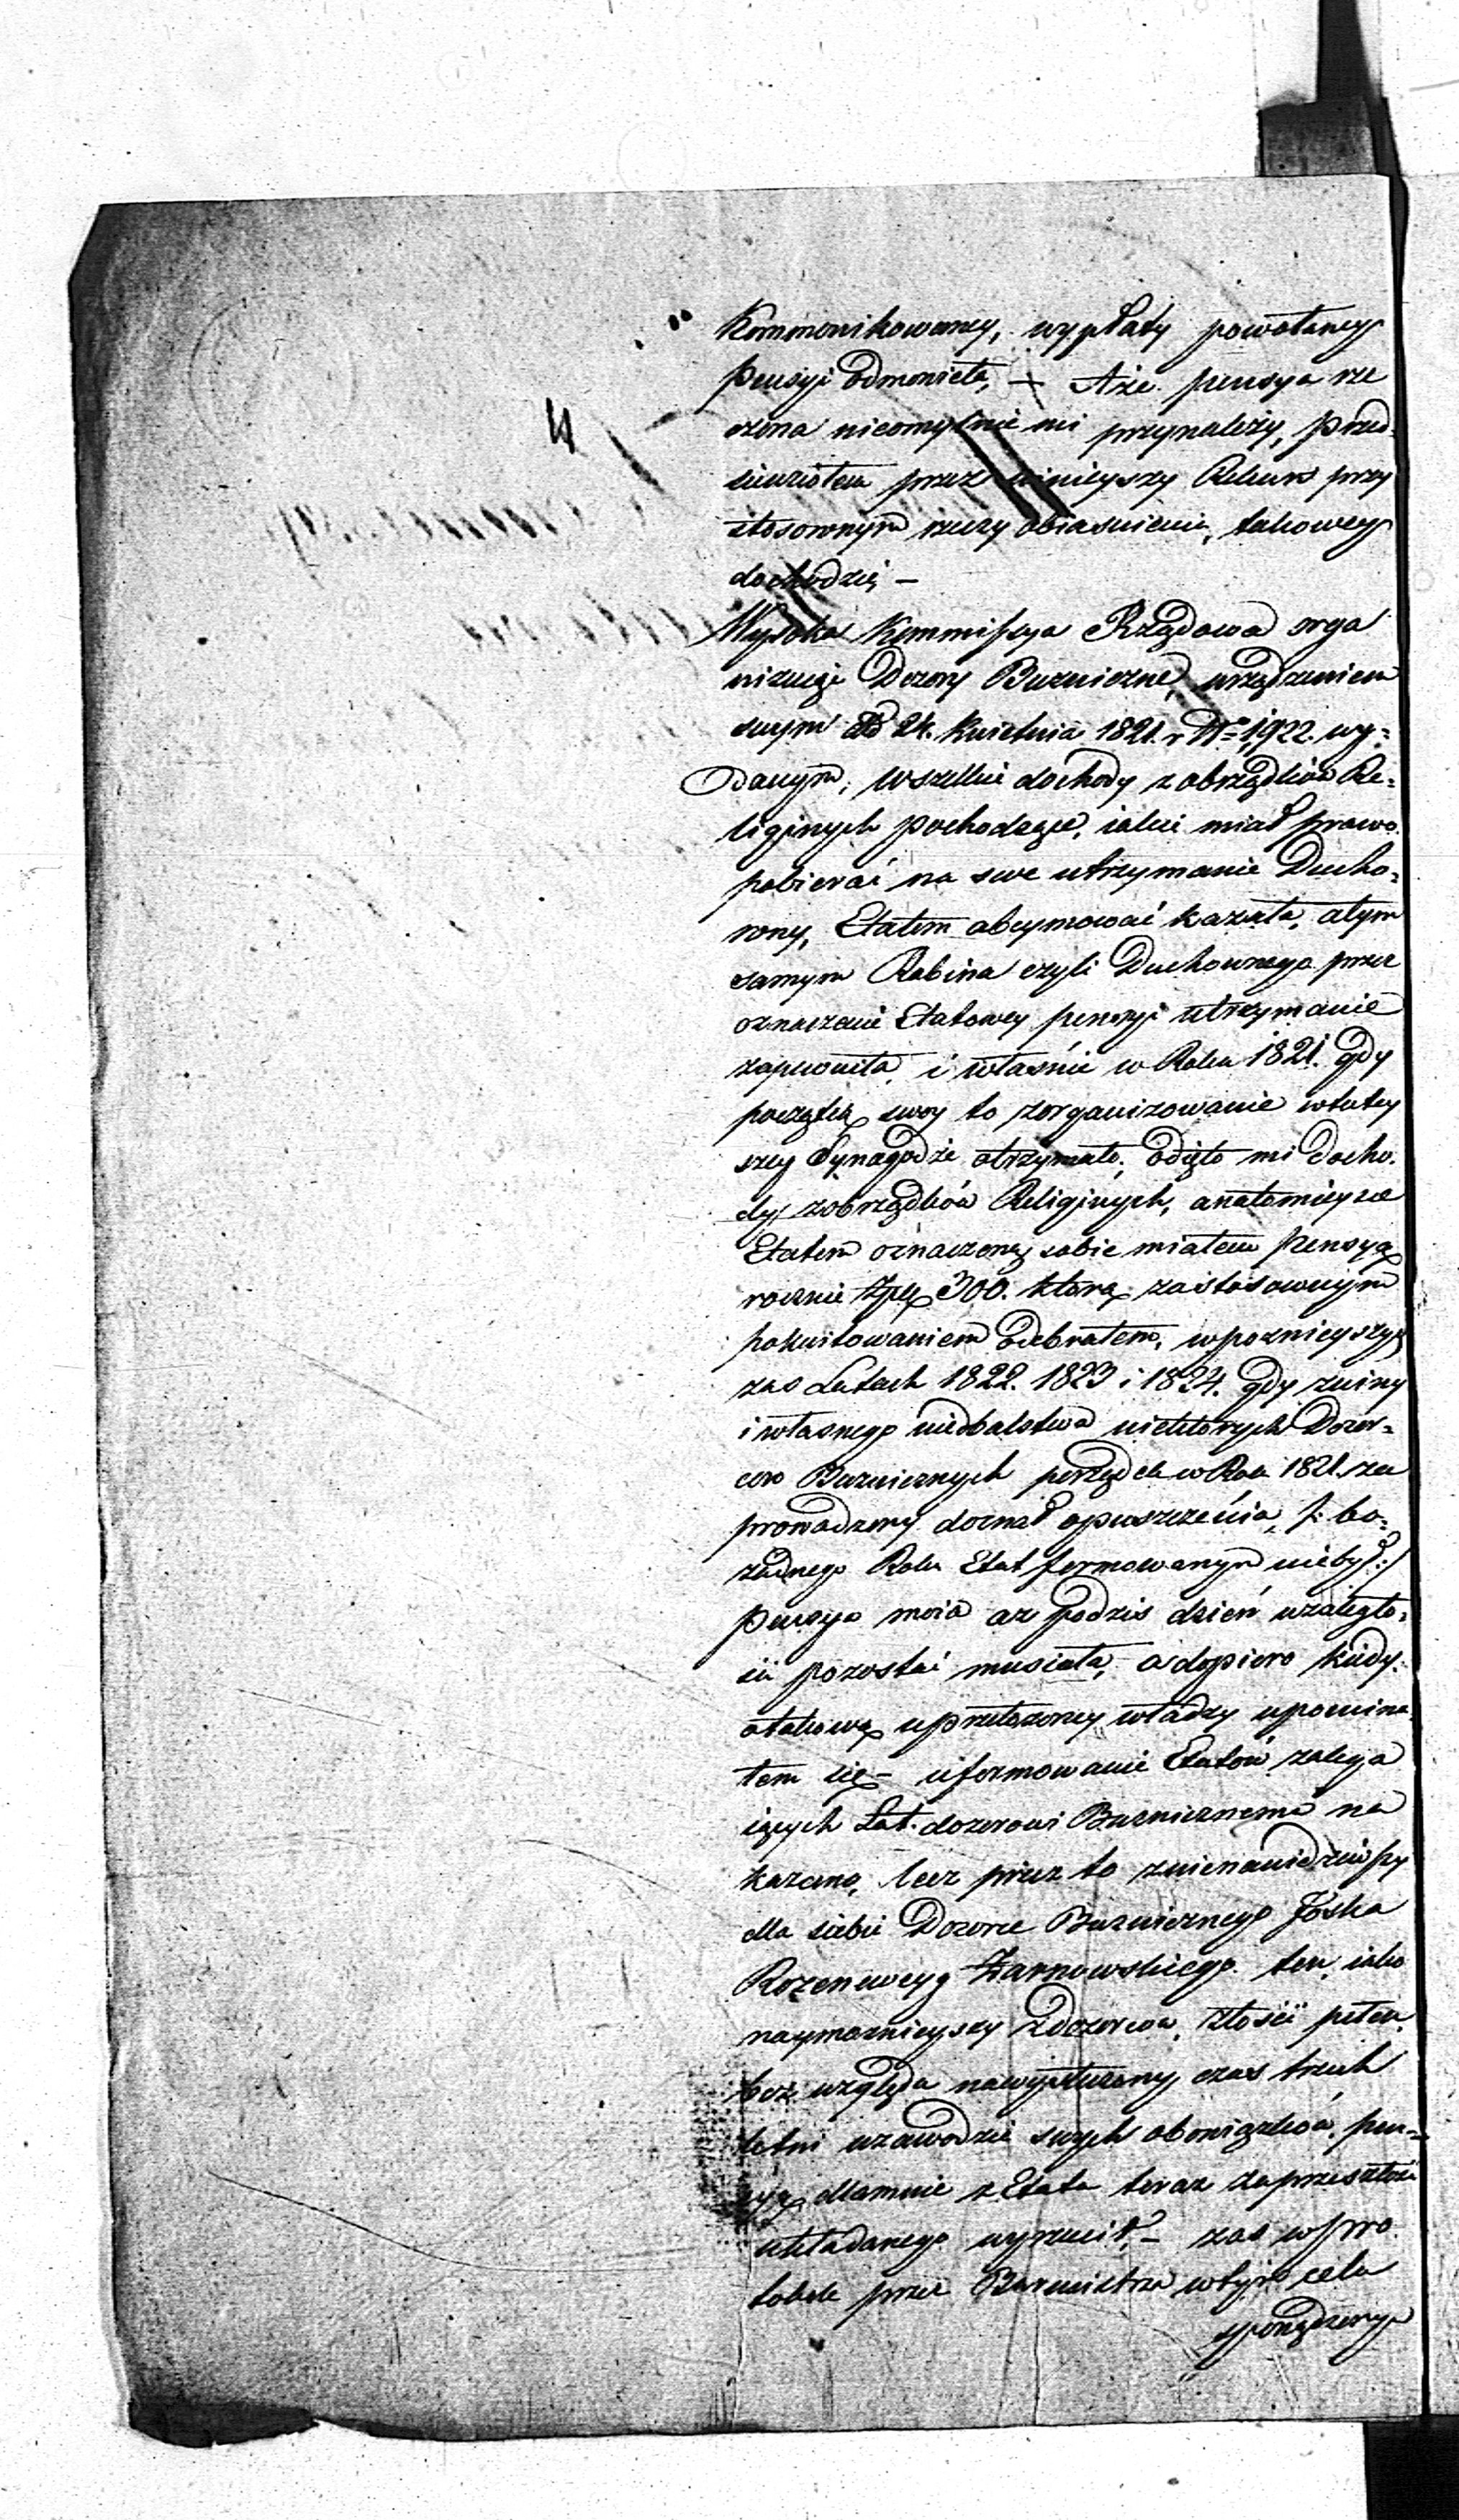 Kommonikowaney, wypłaty powołaney
Pensyi odmowiła, — Aże pensya rze
czona nieomylnie mi przynależy, przed-
sięwziołem przez ninieyszy Rekurs przy
stosownym rzeczy obiasnieniu, takowey
dochodzić —
Wysoka Kommissya Rządowa orga
nizując Dozory Buznicze, urządzeniem
swym dd 24. Kwietnia 1821. r N= 1,922. wy-
danym, wszelkie dochody z obrządków Re-
ligijnych pochodzące, iakie miał prawo
pobierać na swe utrzymanie Ducho-
wny, Etatem obeymować kazała, atym
samym Rabina czyli Duchownego przez
oznaczenie Etatowey pensyi utrzymanie
zapewniła, i właśnie w Roku 1821. gdy
początek swoy to zorganizowanie wtutey
szey Synagodze otrzymało, odięto mi docho-
dy zobrządków Religijnych, anatomieysce
Etatem oznaczoną sobie miałem pensyą
rocznie Złp 300. którą zastosownym
pokwitowaniem odebrałem, wpoznieyszych
zas Latach 1822. 1823 i 1824. gdy zwiny
i własnego niedbalstwa niektorych Dozor-
cow Buznicznych porządek w Roku 1821. za
prowadzony doznał opuszczenia, /: bo
żadnego Roku Etat formowanym niebył :/
pensya moia az podzis dzień wzaległo-
ści pozostać musiała, a dopiero kiedy
otakową uprzełożoney władzy upomina-
łem się — uformowanie Etatów zalega
iących Lat. dozorowi Buznicznemu na
kazano, lecz przez to znienawidziwszy
dla siebie Dozorce Buznicznego Joska
Rozenweyg Żarnowskiego ten iako
naymoznieyszy zdozorcow, złości pełen,
bez względu nawysłużony czas trzech
letni wzawodzie swych obowiązków, pen-
syą dlamnie z Etatu teraz zaprzeszłość
układanego wyrzucił, — zas wpro
tokule przez Burmistrza wtym celu
sporządzonym